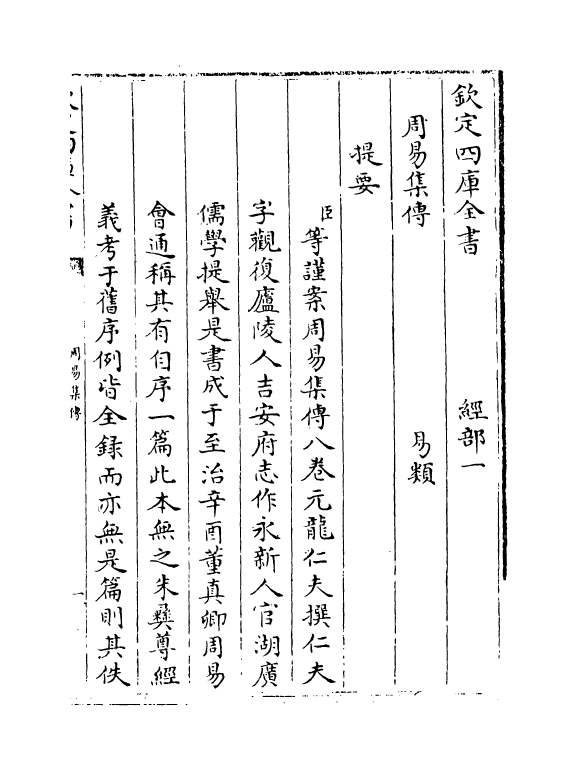 欽定四庫全書　經部一
周易集傳　易類
提要
臣等謹案周易集傳八卷元龍仁夫撰仁夫
字觀復廬陵人吉安府志作永新人官湖廣
儒學提舉是書成于至治辛酉董真卿周易
會通稱其有自序一篇此本無之朱彝尊經
義考于舊序例皆全録而亦無是篇則其佚
周易集傳
一